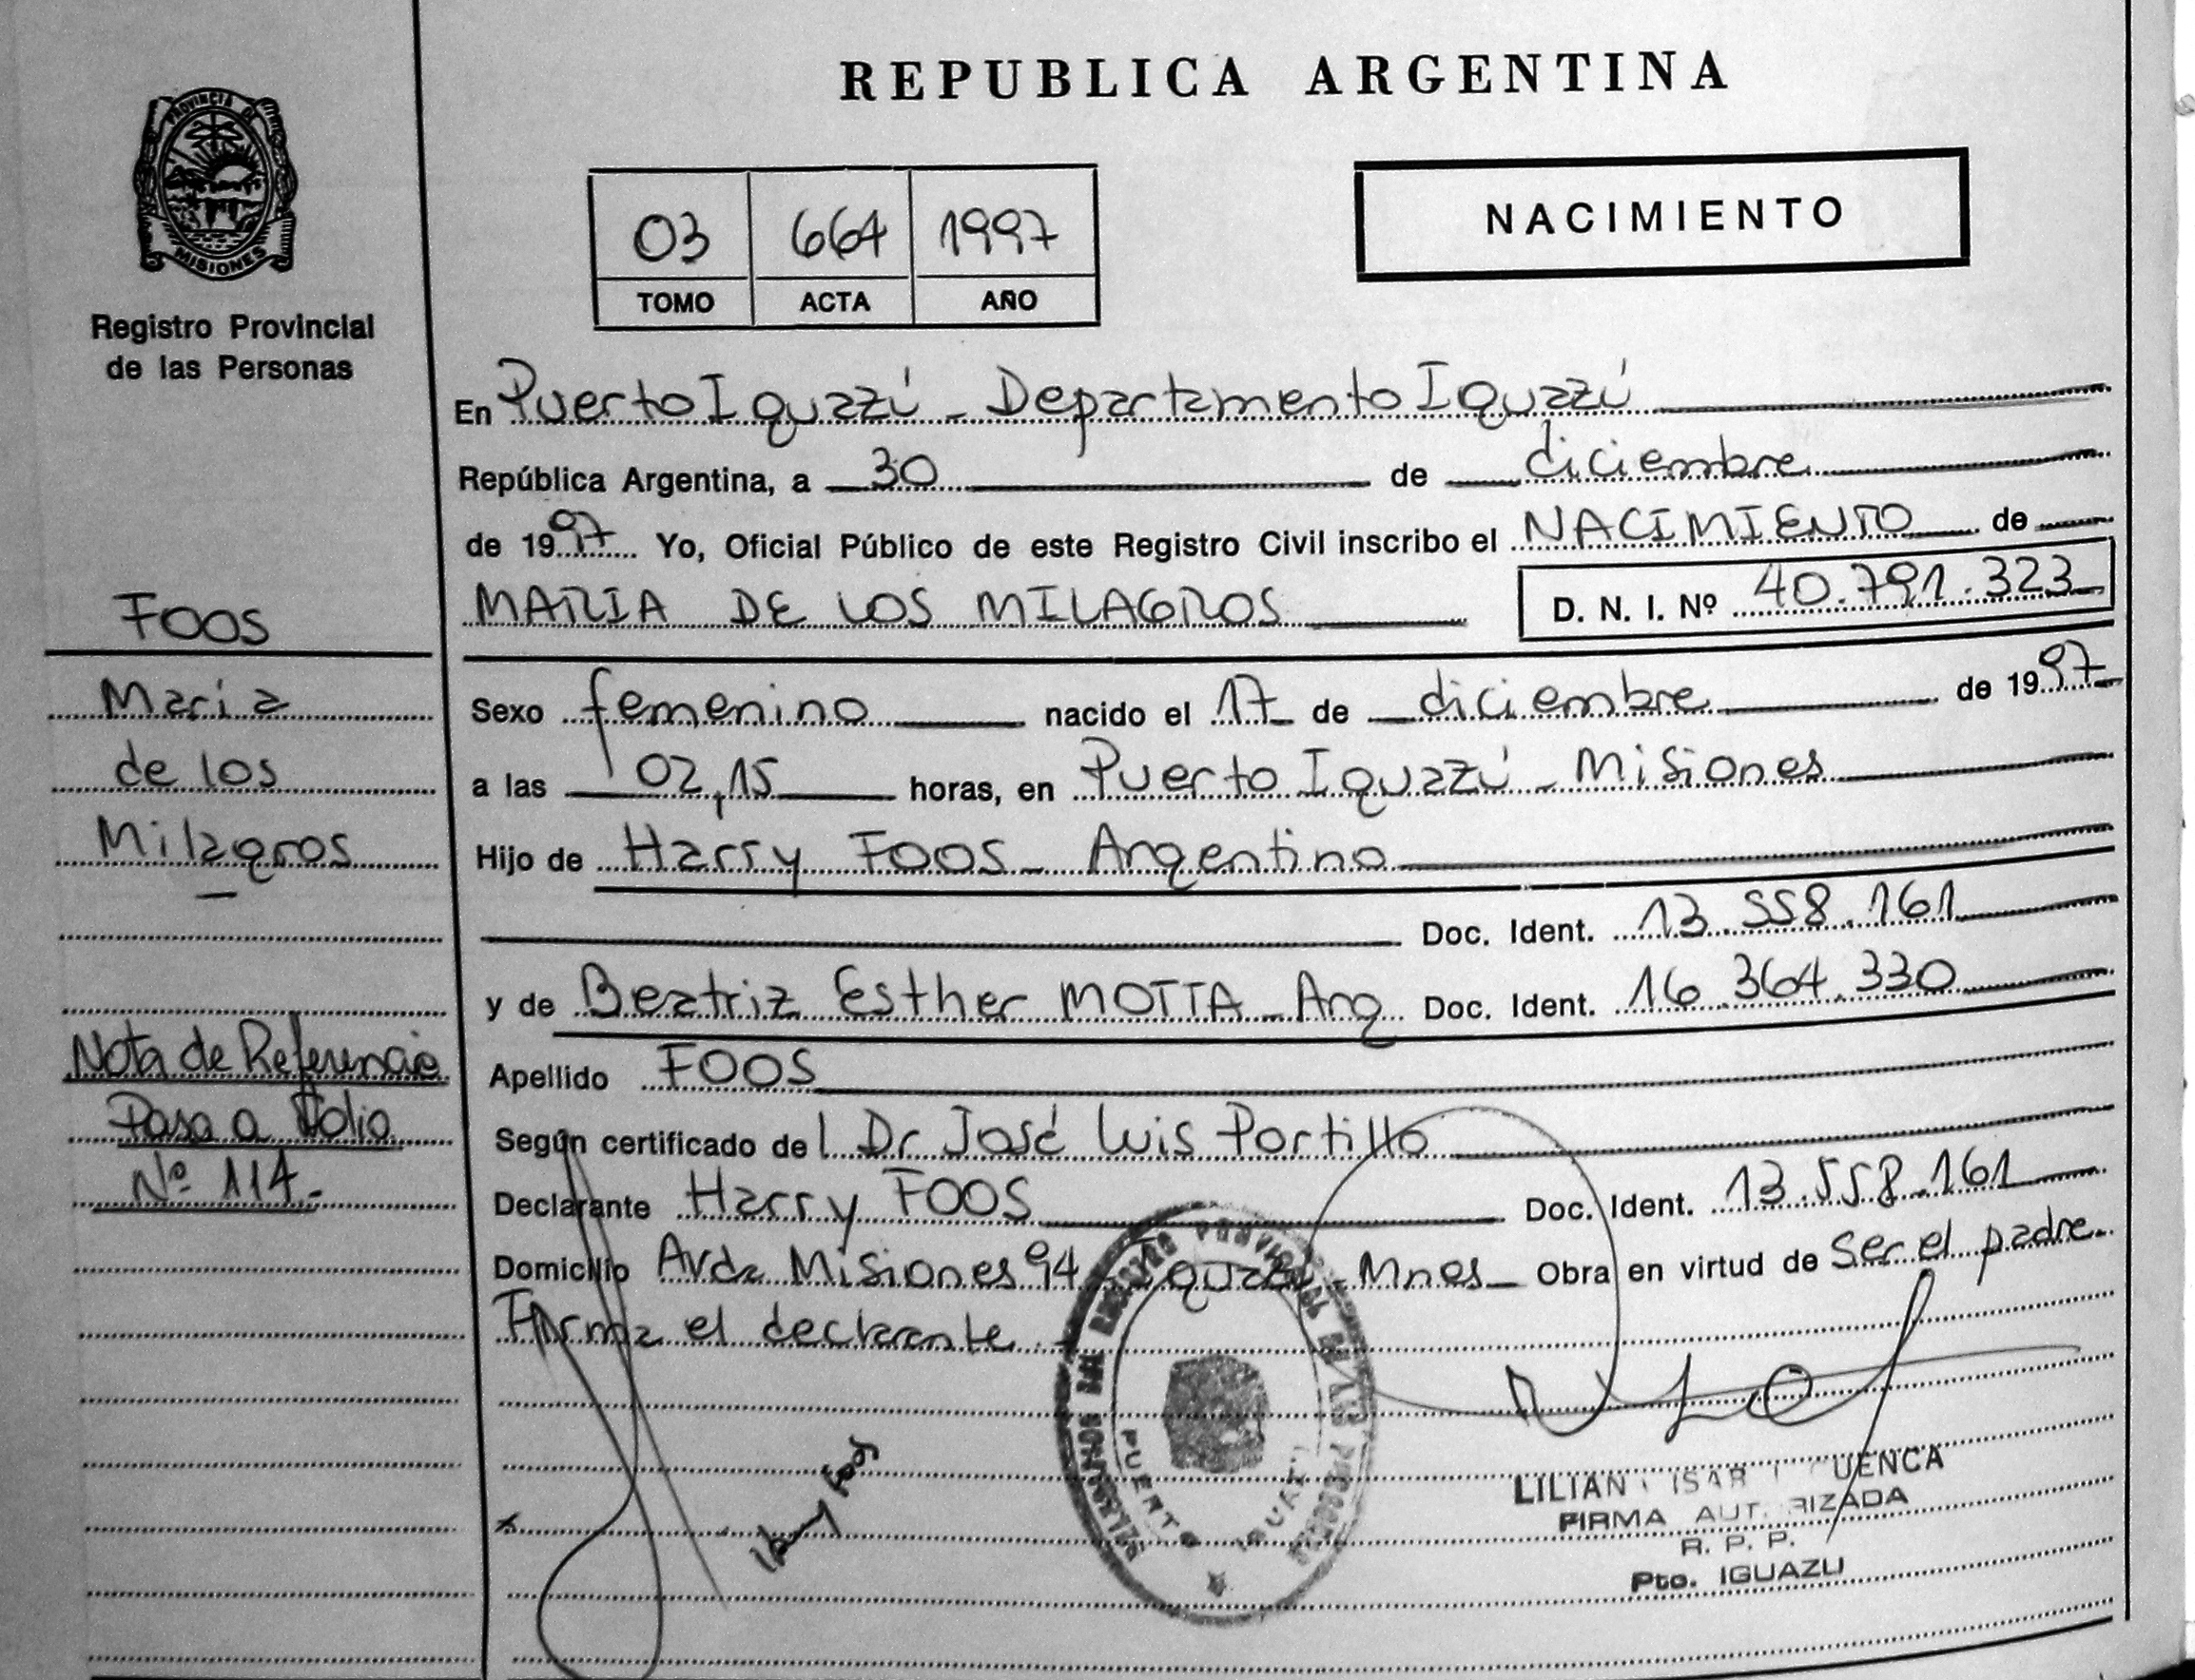 REPUBLICA ARGENTINA
PROVINCIA DE
MISIONES
Registro Provincial
de las Personas
NACIMIENTO
03 664 1997
TOMO ACTA AÑO
En Puerto Iguazú - Departamento Iguazú
República Argentina, a 30 de diciembre
de 1997 Yo, Oficial Público de este Registro Civil inscribo el NACIMIENTO de
MARIA DE LOS MILAGROS D. N. I. Nº 40.791.323
Sexo femenino nacido el 17 de diciembre de 1997
a las 02,15 horas, en Puerto Iguazú - Misiones
Hijo de Harry FOOS - Argentino
Doc. Ident. 13.558.161
y de Beatriz Esther MOTTA - Arg Doc. Ident. 16.364.330
Apellido FOOS
Según certificado de l Dr José Luis Portillo
Declarante Harry FOOS Doc. Ident. 13.558.161
Domicilio Avda Misiones 94 - Iguazú - Mnes - Obra en virtud de Ser el padre.
Firma el declarante.
FOOS
María
de los
Milagros
Nota de Referencia
Pasa a Folio
Nº 114.-
Harry Foos
REGISTRO PROVINCIAL DE LAS PERSONAS
PUERTO IGUAZU
LILIAN UENCA
FIRMA AUTORIZADA
R. P. P.
Pto. IGUAZU